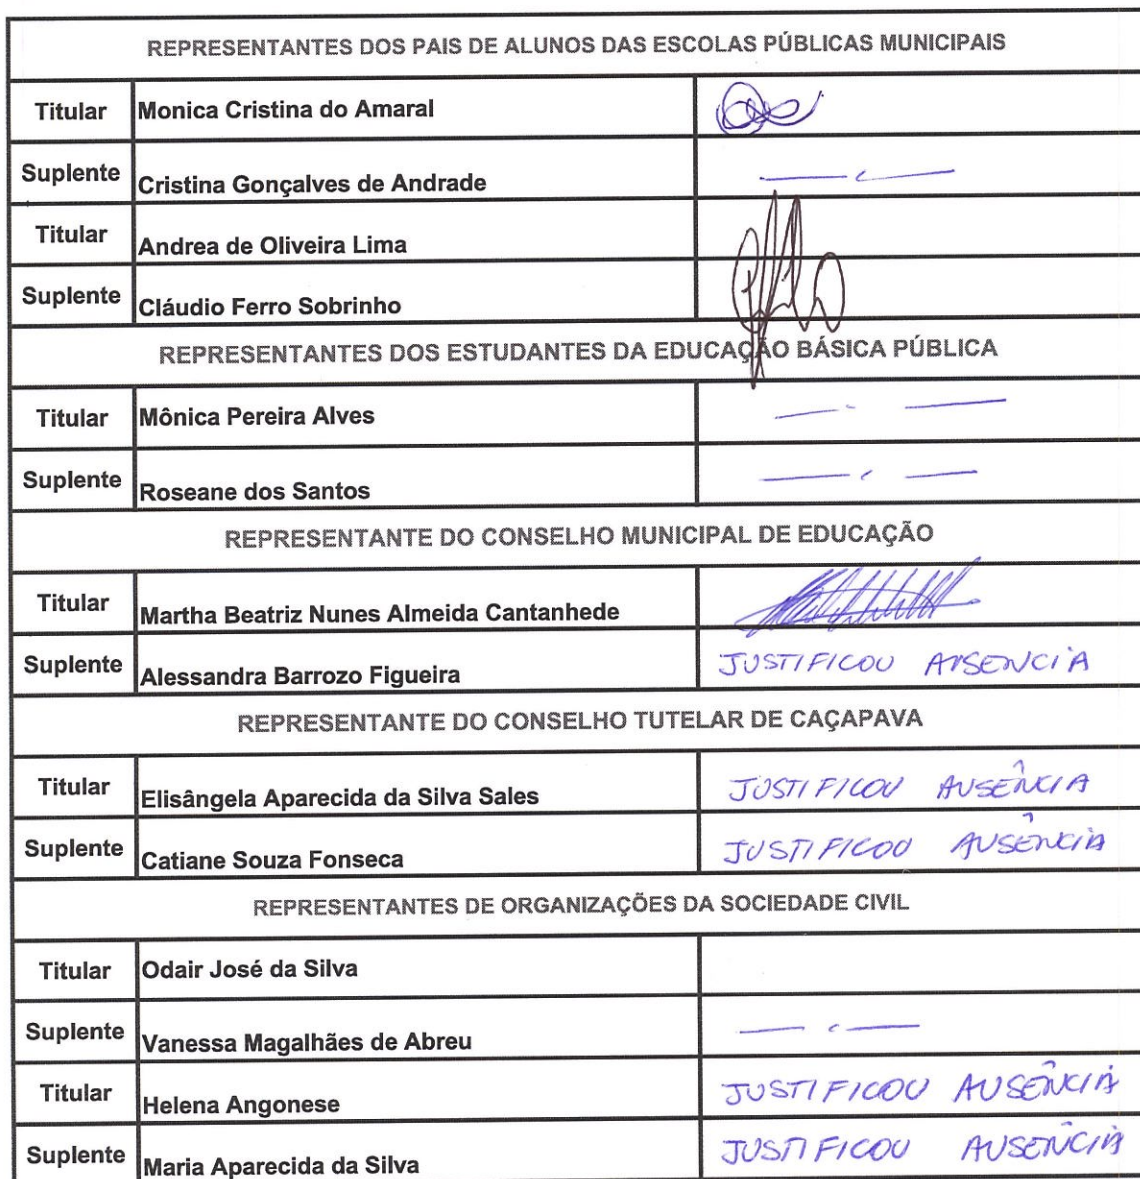 REPRESENTANTES DOS PAIS DE ALUNOS DAS ESCOLAS PÚBLICAS MUNICIPAIS
Titular Monica Cristina do Amaral
Suplente Cristina Gonçalves de Andrade
Titular Andrea de Oliveira Lima
Suplente Cláudio Ferro Sobrinho
REPRESENTANTES DOS ESTUDANTES DA EDUCAÇÃO BÁSICA PÚBLICA
Titular Mônica Pereira Alves
Suplente Roseane dos Santos
REPRESENTANTE DO CONSELHO MUNICIPAL DE EDUCAÇÃO
Titular Martha Beatriz Nunes Almeida Cantanhede
Suplente Alessandra Barrozo Figueira JUSTIFICOU AUSENCIA
REPRESENTANTE DO CONSELHO TUTELAR DE CAÇAPAVA
Titular Elisângela Aparecida da Silva Sales JUSTIFICOU AUSÊNCIA
Suplente Catiane Souza Fonseca JUSTIFICOU AUSÊNCIA
REPRESENTANTES DE ORGANIZAÇÕES DA SOCIEDADE CIVIL
Titular Odair José da Silva
Suplente Vanessa Magalhães de Abreu
Titular Helena Angonese JUSTIFICOU AUSÊNCIA
Suplente Maria Aparecida da Silva JUSTIFICOU AUSÊNCIA